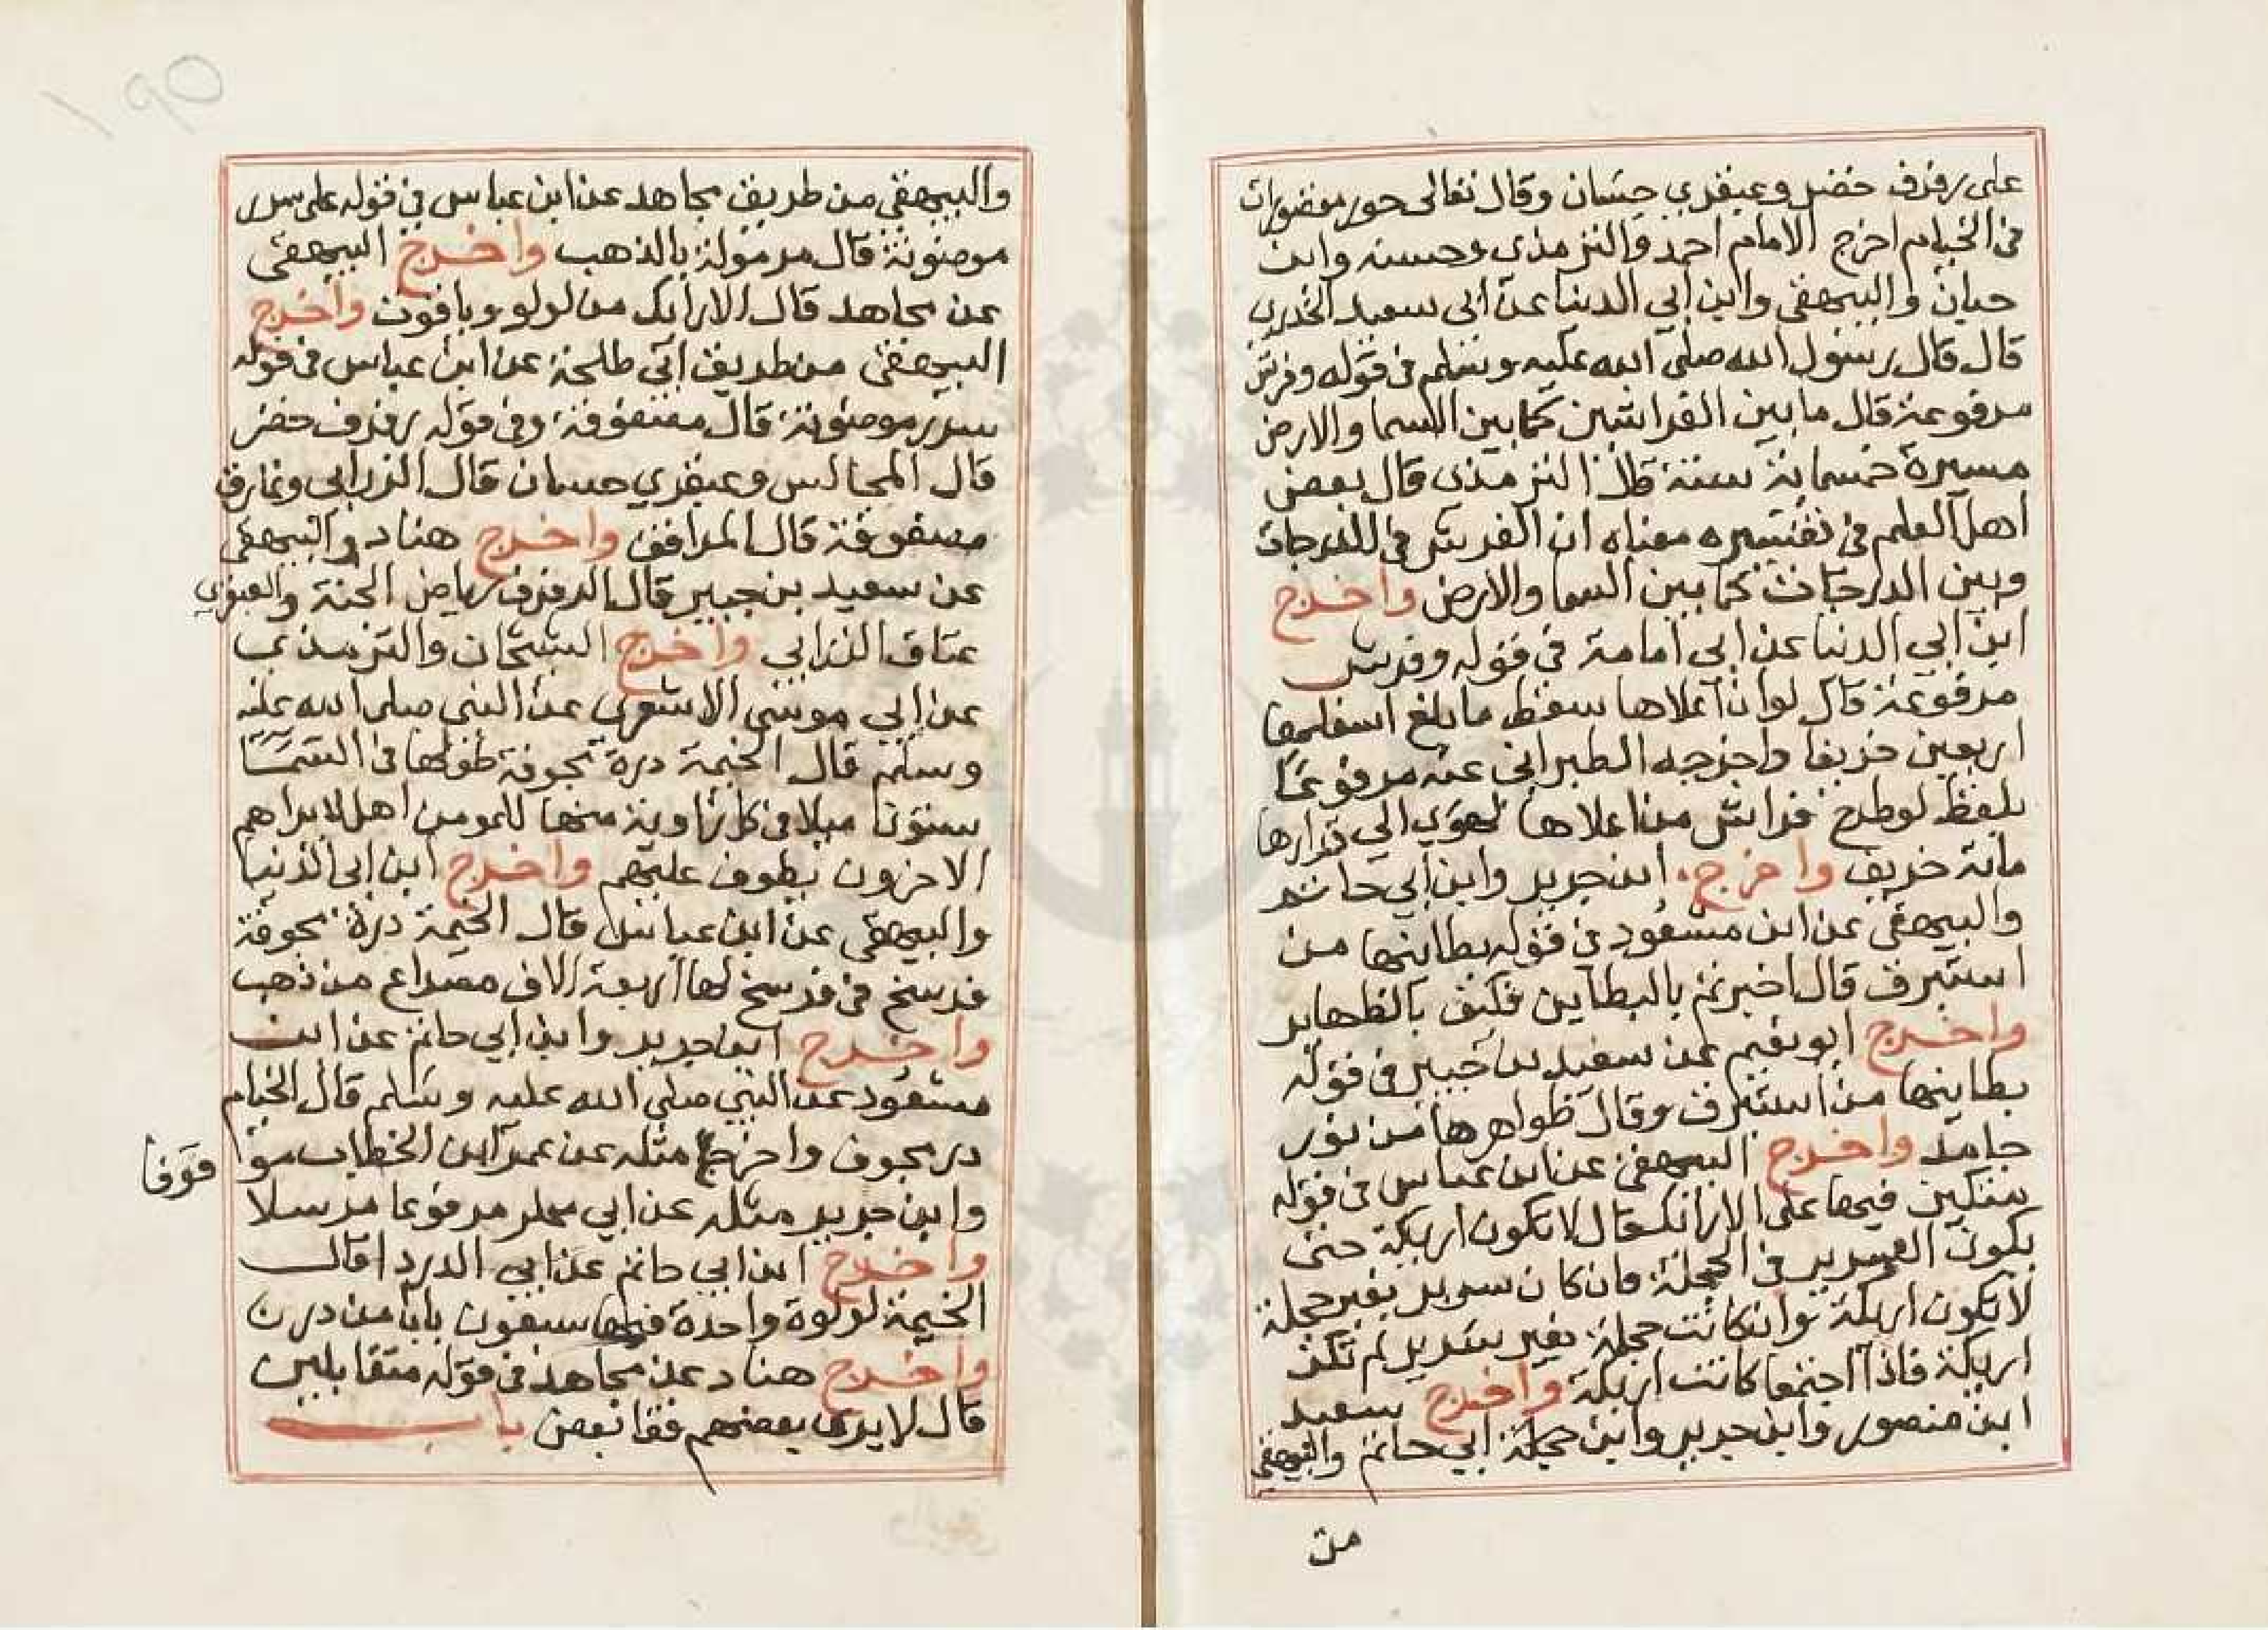 على رفرف خضر وعبقري حسان وقال تعالى حور مقصورات
في الخيام اخرج الامام احمد والترمذى وحسنه وابن
حبان والبيهقي وابن ابي الدنيا عن ابى سعيد الخدري
قال قال رسول الله صلى الله عليه وسلم في قوله وفرش
مرفوعة قال ما بين الفراشين كما بين السما والارض
مسيرة خمسماية سنة قال الترمذى قال بعض
اهل العلم في تفسيره معناه ان الفرش في الدرجات
وبين الدرجات كما بين السما والارض واخرج
ابن ابي الدنيا عن ابى امامة في قوله وفرش
مرفوعة قال لو ان اعلاها سقط ما بلغ اسفلها
اربعين خريفا واخرجه الطبرانى عنه مرفوعا
بلفظ لو طرح فراش من اعلاها لهوى الى قرارها
ماية خريف واخرج ابن جرير وابن ابي حاتم
والبيهقي عن ابن مسعود في قوله بطاينها من
استبرق قال اخبرتم بالبطاين فكيف بالظهاير
واخرج ابو نعيم عن سعيد بن جبير في قوله
بطاينها من استبرق وقال ظواهرها من نور
جامد واخرج البيهقي عن ابن عباس في قوله
متكين فيها على الارائك قال لا تكون اريكة حتى
يكون السرير في الحجلة فان كان سرير بغير حجلة
لا تكون اريكة وان كانت حجلة بغير سرير لم تكن
اريكة فاذا اجتمعا كانت اريكة واخرج سعيد
ابن منصور وابن جرير وابن ابي حاتم والبيهقي
من
١٩٥
والبيهقي من طريق مجاهد عن ابن عباس في قوله على سرر
موضونة قال مرمولة بالذهب واخرج البيهقي
عن مجاهد قال الارايك من لولو وياقوت واخرج
البيهقي من طريق ابي طلحة عن ابن عباس في قوله
سرر موضونة قال مصفوفة وفي قوله رفرف خضر
قال المجالس وعبقري حسان قال الزرابي ونمارق
مصفوفة قال المرافق واخرج هناد والبيهقي
عن سعيد بن جبير قال الرفرف رياض الجنة والعبقري
عتاق الزرابي واخرج الشيخان والترمذي
عن ابي موسى الاشعري عن النبي صلى الله عليه
وسلم قال الخيمة درة مجوفة طولها في السما
ستون ميلا في كل زاوية منها للمومن اهل لا يراهم
الاخرون يطوف عليهم واخرج ابن ابى الدنيا
والبيهقي عن ابن عباس قال الخيمة درة مجوفة
فرسخ في فرسخ لها اربعة الاف مصراع من ذهب
واخرج ابن جرير وابن ابي حاتم عن ابن
مسعود عن النبي صلى الله عليه وسلم قال الخيام
در مجوف واخرج مثله عن عمر ابن الخطاب موقوفا
وابن جرير مثله عن ابي مجلز مرفوعا مرسلا
واخرج ابن ابي حاتم عن ابي الدردا قال
الخيمة لولوة واحدة فيها سبعون بابا من در
واخرج هناد عن مجاهد في قوله متقابلين
قال لا يرى بعضهم قفا بعض باب